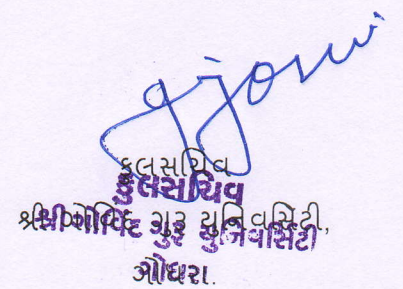 કુલસચિવ
કુલસચિવ
શ્રી ગોવિંદ ગુરુ યુનિવર્સિટી,
શ્રી ગોવિંદ ગુરુ યુનિવર્સિટી
ગોધરા.